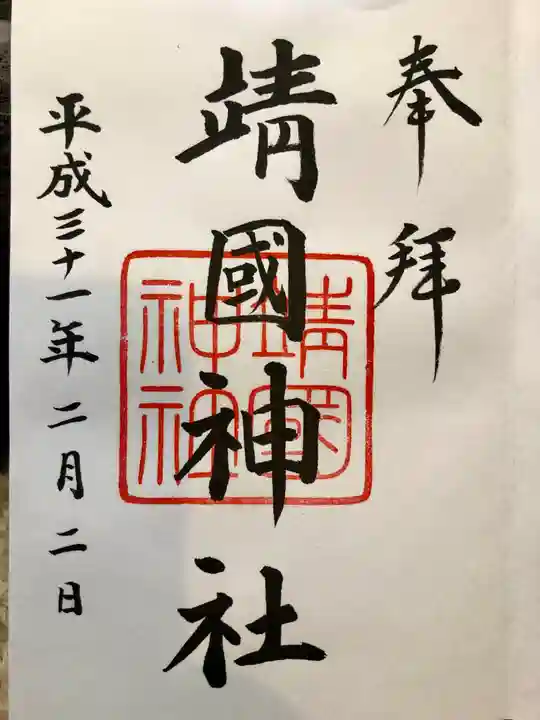 奉拝
靖國神社
靖国
神社
平成三十一年二月二日